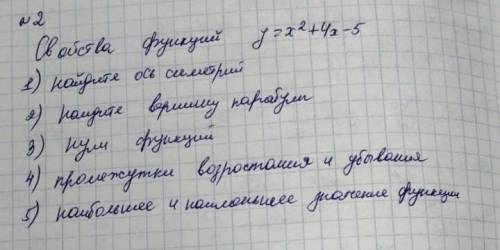 №2
Свойства функций y=x²+4x-5
1) найдите ось симетрий
2) найдите вершину параболы
3) нули функций
4) промежутки возростания и убывания
5) наибольшее и наименьшее значение функции